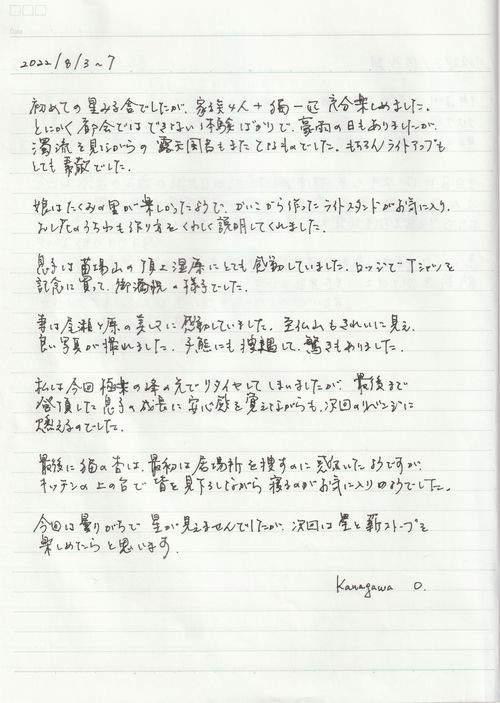 Date
2022/8/3~7
初めての星みる舎でしたが、家族4人+猫一匹 充分楽しめました。
とにかく都会ではできない体験ばかりで、豪雨の日もありましたが、
濁流を見ながらの露天風呂もまたてなものでした。もちろんライトアップも
とても素敵でした。
娘はたくみの里が楽しかったようで、かいこから作ったライトスタンドがお気に入り。
のうちわも作り方をくわしく説明してくれました。
息子は苗場山の頂上湿原にとても感動していました。ロッジでTシャツを
記念に買って、御満悦の様子でした。
妻は尾瀬ヶ原の美しさに感動していました。至仏山もきれいに見え、
良い写真が撮れました。子熊にも遭遇して、驚きもありました。
私は今回極楽の峰の先でリタイヤしてしまいましたが、最後まで
登頂した息子の成長に安心感を覚えながらも、次回のリベンジに
燃えるのでした。
最後に猫の杏は、最初は居場所を捜すのに ようですが、
キッチンの上の台で皆を見下ろしながら寝るのがお気に入りのようでした。
今回は曇りがちで星が見えませんでしたが、次回は星と薪ストーブを
楽しめたらと思います。
Kanagawa O.